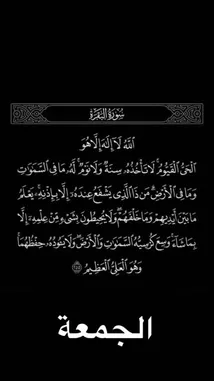 سُورَةُ البَقَرَةِ
اللَّهُ لَا إِلَٰهَ إِلَّا هُوَ
الْحَيُّ الْقَيُّومُ لَا تَأْخُذُهُ سِنَةٌ وَلَا نَوْمٌ لَّهُ مَا فِي السَّمَاوَاتِ
وَمَا فِي الْأَرْضِ مَن ذَا الَّذِي يَشْفَعُ عِندَهُ إِلَّا بِإِذْنِهِ يَعْلَمُ
مَا بَيْنَ أَيْدِيهِمْ وَمَا خَلْفَهُمْ وَلَا يُحِيطُونَ بِشَيْءٍ مِّنْ عِلْمِهِ إِلَّا
بِمَا شَاءَ وَسِعَ كُرْسِيُّهُ السَّمَاوَاتِ وَالْأَرْضَ وَلَا يَئُودُهُ حِفْظُهُمَا
وَهُوَ الْعَلِيُّ الْعَظِيمُ ٢٥٥
الجمعة